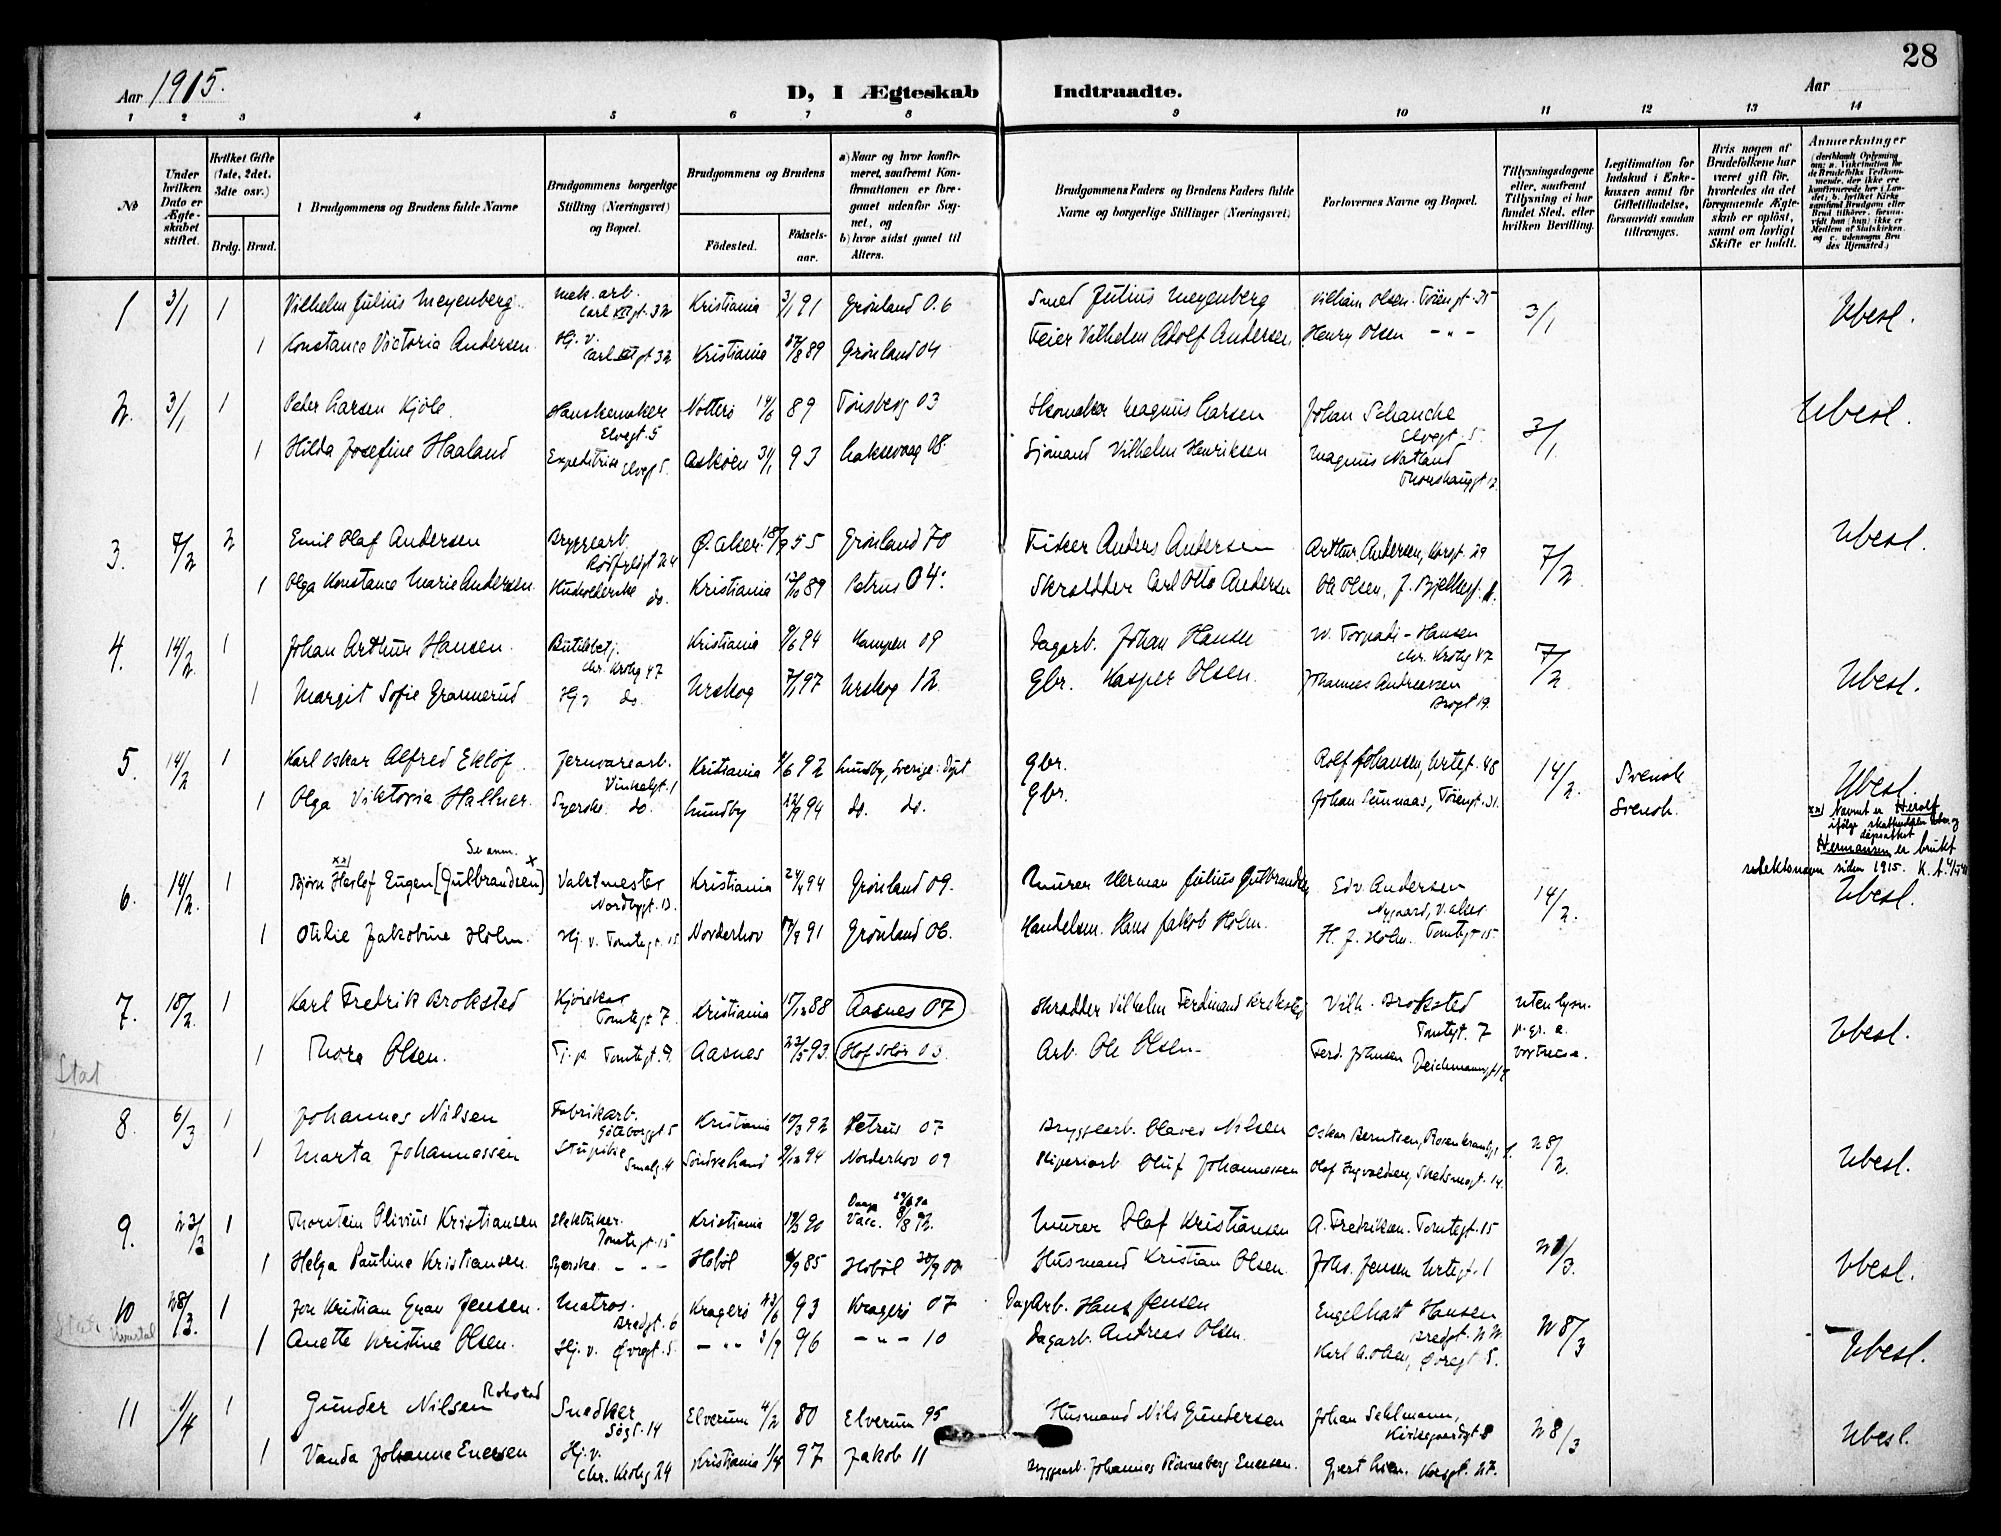 28
Aar 1915.
D, I Ægteskab Indtraadte.
Aar
1 2 3 4 5 6 7 8 9 10 11 12 13 14
No
Under hvilken Dato er Ægteskabet stiftet.
Hvilket Gifte (1ste, 2det, 3dte osv.)
Brdg. Brud.
Brudgommens og Brudens fulde Navne
Brudgommens borgerlige Stilling (Næringsvei) og Bopæl.
Brudgommens og Brudens
Fødested. Fødselsaar.
a) Naar og hvor konfirmeret, saafremt Konfirmationen er foregaaet udenfor Sognet, og
b) hvor sidst gaaet til Alters.
Brudgommens Faders og Brudens Faders fulde Navne og borgerlige Stillinger (Næringsvei)
Forlovernes Navne og Bopæl.
Tillysningsdagene eller, saafremt Tillysning ei har fundet Sted, efter hvilken Bevilling.
Legitimation for Indskud i Enkekassen samt for Giftetilladelse, forsaavidt saadan tiltrænges.
Hvis nogen af Brudefolkene har været gift før, hvorledes da det foregaaende Ægteskab er opløst, samt om lovligt Skifte er holdt.
Anmerkninger
1 3/1 1 Vilhelm Julius Meyenberg. Mek. arb. Carl XII gt. 32 Kristiania 3/1 91 Grønland 06 Smed Julius Meyenberg William Olsen. Töiengt. 35 3/1 Ubesl.
1 Konstance Victoria Andersen Hj. v. Carl XII gt 32 Kristiania 27/8 89 Grønland 04 Feier Vilhelm Adolf Andersen Henry Olsen - " -
2. 3/1 1 Peder Larsen Kjöle. Hanskemaker Elvegt. 5 Nötterö 14/6 89 Tönsberg 03 Skomaker Magnus Larsen Johan Schancke Elvegt. 5 3/1 Ubesl.
1 Hilda Josefine Haaland Expeditrise Elvegt 5. Asköen 31/1 93 Laksevaag 08. Sjömand Vilhelm Henriksen Magnus Natland Thorshauggt 12.
3. 7/2 2 Emil Olaf Andersen Bryggearb. Rödfyldgt 24 Ø. aker. 18/9 55 Grønland 70 Fisker Anders Andersen Arthur Andersen, Korsgt. 29 7/2 Ubesl.
1 Olga Konstance Marie Andersen. Husholderske do. Kristiania 12/10 89 Petrus 04. Skrædder Carl Otto Andersen Ole Olsen, J. Bjelkesgt.
4. 14/2 1 Johan Arthur Hansen. Butikbetj. Chr. Krohg 47 Kristiania 9/6 94 Kampen 09 Dagarb. Johan Hansen W. Torpadi-Hansen Chr. Krohg 47 7/2 Ubesl.
1 Margit Sofie Grannerud Hj v do. Urskog 7/1 97 Urskog 12. Gbr. Kasper Olsen. Johannes Andreassen Brogt 19.
5. 14/2 1 Karl Oskar Alfred Eklöf. Jernvarearb. Vinkelgt. 1 Kristiania 9/6 92 Lundby, Sverige. Döpt Gbr. Rolf Johansen, Urtegt. 48 14/2. Svensk Ubesl.
1 Olga Viktoria Hallner. Syerske do. Lundby 22/9 94 do. do. Gbr. Johan Sunnaas, Töiengt. 31. Svensk.
xx) Navnet er Herolf ifølge
Hermansen er brukt
siden 1915. K. A.
Se anm.
6. 14/2. 1 Björn Herlof Eugen [Gulbrandsen] Vaktmester Nordbygt. 13. Kristiania 24/4 94 Grønland 09. Murer Herman Julius Gulbrandsen Edv Andersen Nygaard, V. aker 14/2. Ubesl.
1 Otilie Jakobine Holm. Hj. v. Tomtegt. 15 Norderhov 17/9 91 Grønland 06. Handelsm. Hans Jakob Holm. H. J. Holm. Tomtegt 15.
7. 18/2. 1 Karl Fredrik Broksted Kjörekar Tomtegt 7. Kristiania 17/12 88 Aasnes 07 Skrædder Vilhelm Ferdinand Broksted Vilh. Broksted Tomtegt. 7 uten lysn. p. gr. a. Ubesl.
1 Thora Olsen. Tj. p. Tomtegt. 9. Aasnes 22/5 93. Hof Solör 03. Arb. Ole Olsen. Ferd. Johnsen Deichmansgt 17
Stat
8. 6/3 1 Johannes Nilsen Fabrikarb. Göteborggt 5 Kristiania 10/3 92 Petrus 07 Bryggearb. Olaves Nilsen Oskar Berntsen, Rosenkrantzgt 28/2. Ubesl.
1 Marta Johannessen Stuepike Smalg. 4 Söndre Land 9/12 94 Norderhov 09 Oluf Johannessen Olaf Ingvaldsen, Skedsmogt. 14.
9. 22/3 1 Thorstein Olivius Kristiansen Elektriker. Tomtegt. 15 Kristiania 19/3 90 Vacc. 9/8 92. Murer Olaf Kristiansen A. Fredriksen. Tomtegt. 15 21/3. Ubesl.
1 Helga Pauline Kristiansen. Syerske. - " - Hoböl 4/9 85 Hoböl 30/9 00. Husmand Kristian Olsen. Johs. Jensen Urtegt. 1
10 28/3. 1 Jon Kristian Gran Jensen. Matros. Bredgt. 6 Kragerö 23/6 93 Kragerö 07 DagArb. Hans Jensen Engelhart Hansen Bredgt. 22. 28/3 Ubesl.
1 Anette Kristine Olsen. Hj. v. Øvregt. 5. - " - 3/9 96 - " - 10 Dagarb. Andreas Olsen. Karl A. Olsen, Øvregt 5.
11 1/4 1 Gunder Nilsen Rokstad Snedker Søgt. 14 Elverum 4/2 80 Elverum 95 Husmand Nils Gundersen Johan Sehlmann, Kirkegaardgt 8 28/3 Ubesl.
1 Vanda Johanne Enersen Hj. v. Chr. Krohg 24 Kristiania 1/4 97 Jakob 11 Bryggearb. Johannes Rönneberg Enersen. Gjert Lien. Korsgt. 27.